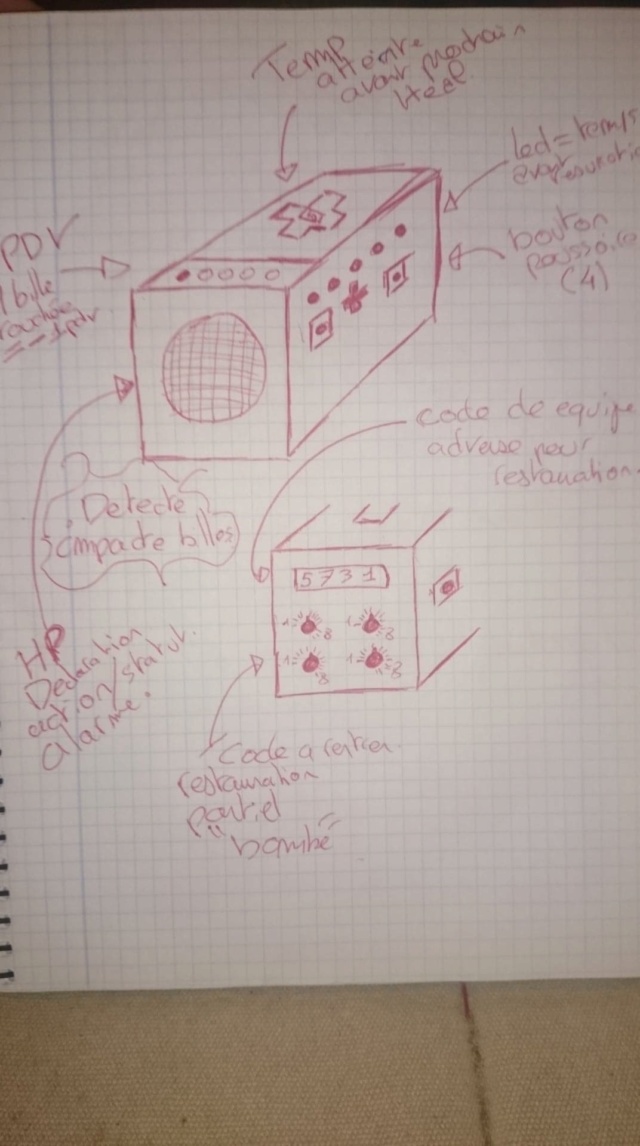 Temp
attente
avant prochain
Heal
led = temps
avant
bouton
(4)
PDV
1 bille
= -1 pdv
code de equipe
adverse pour
restauration.
Detecte
impacte billes
5731
1 8
1 8
1 8
1 8
HP
Declaration
action/statut.
alarme.
Code a rentrer
restauration
partiel
"bombe"